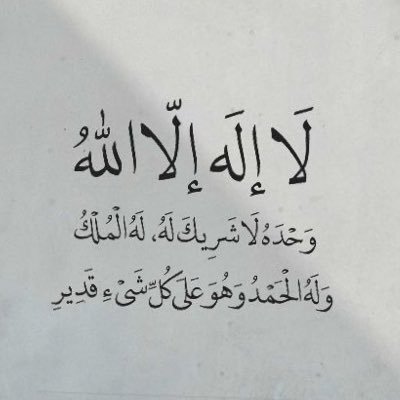 لَا إِلَه إِلّا اللهُ
وَحْدَهُ لَا شَرِيكَ لَهُ، لَهُ الْمُلْكُ
وَلَهُ الْحَمْدُ وَهُوَ عَلَى كُلِّ شَيْءٍ قَدِيرِ